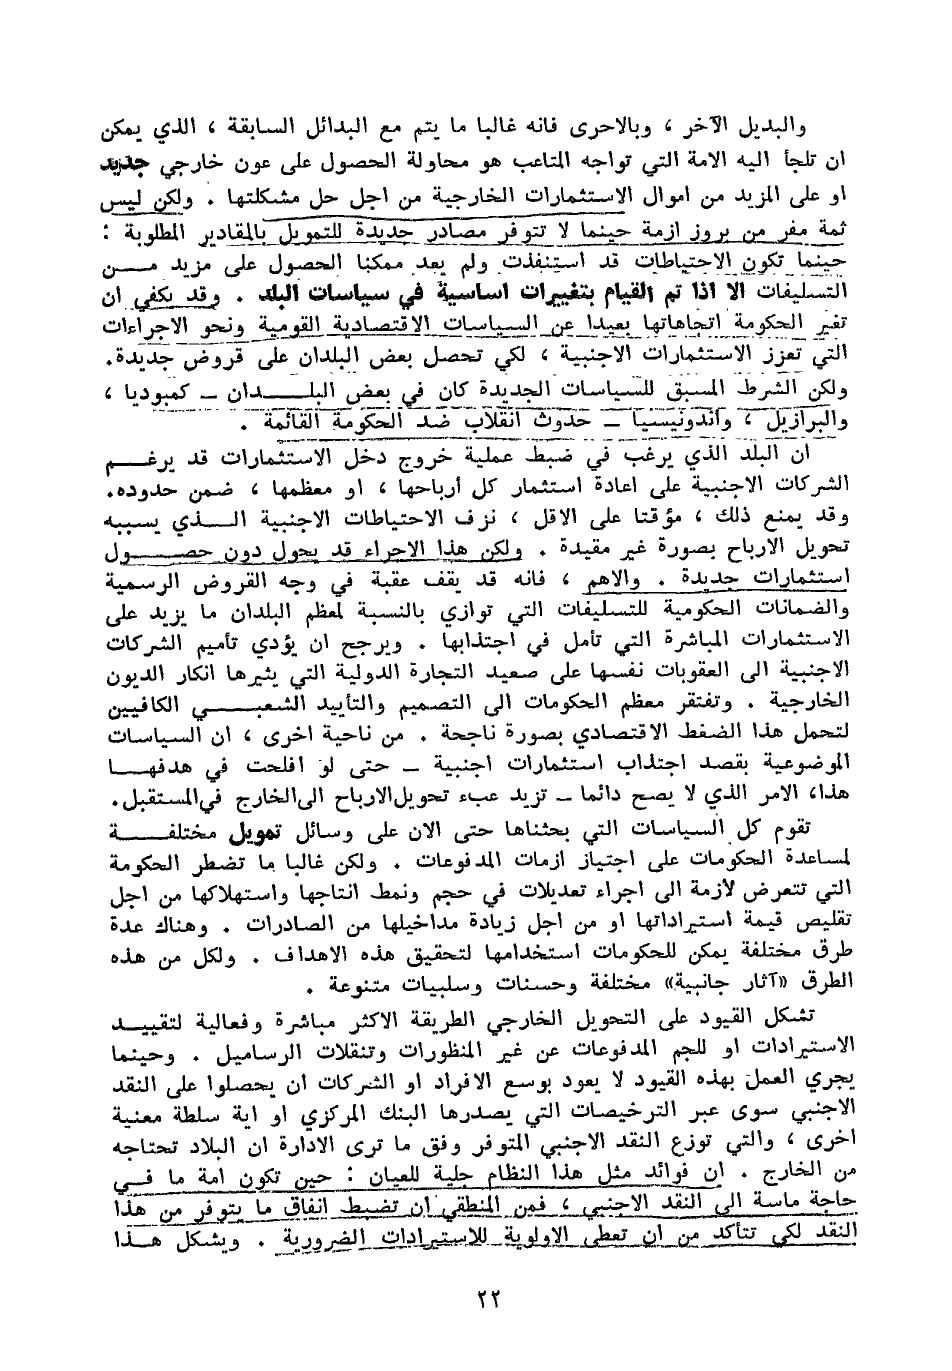 والبديل الآخر ، وبالاحرى فانه غالبا ما يتم مع البدائل السابقة ، الذي يمكن
ان تلجأ اليه الامة التي تواجه المتاعب هو محاولة الحصول على عون خارجي جديد
او على المزيد من اموال الاستثمارات الخارجية من اجل حل مشكلتها . ولكن ليس
ثمة مفر من بروز ازمة حينما لا تتوفر مصادر جديدة للتمويل بالمقادير المطلوبة :
حينما تكون الاحتياطات قد استنفذت ولم يعد ممكنا الحصول على مزيد مــن
التسليفات الا اذا تم القيام بتغييرات اساسية في سياسات البلد . وقد يكفي ان
تغير الحكومة اتجاهاتها بعيدا عن السياسات الاقتصادية القومية ونحو الاجراءات
التي تعزز الاستثمارات الاجنبية ، لكي تحصل بعض البلدان على قروض جديدة.
ولكن الشرط المسبق للسياسات الجديدة كان في بعض البلــــدان – كمبوديا ،
والبرازيل ، وأندونيسيا – حدوث انقلاب ضد الحكومة القائمة .
ان البلد الذي يرغب في ضبط عملية خروج دخل الاستثمارات قد يرغــم
الشركات الاجنبية على اعادة استثمار كل أرباحها ، او معظمها ، ضمن حدوده.
وقد يمنع ذلك ، مؤقتا على الاقل ، نزف الاحتياطات الاجنبية الــذي يسببه
تحويل الارباح بصورة غير مقيدة . ولكن هذا الاجراء قد يحول دون حصـــول
استثمارات جديدة . والاهم ، فانه قد يقف عقبة في وجه القروض الرسمية
والضمانات الحكومية للتسليفات التي توازي بالنسبة لمعظم البلدان ما يزيد على
الاستثمارات المباشرة التي تأمل في اجتذابها . ويرجح ان يؤدي تأميم الشركات
الاجنبية الى العقوبات نفسها على صعيد التجارة الدولية التي يثيرها انكار الديون
الخارجية . وتفتقر معظم الحكومات الى التصميم والتأييد الشعبــــي الكافيين
لتحمل هذا الضغط الاقتصادي بصورة ناجحة . من ناحية اخرى ، ان السياسات
الموضوعية بقصد اجتذاب استثمارات اجنبية – حتى لو افلحت في هدفهــا
هذا، الامر الذي لا يصح دائما – تزيد عبء تحويل الارباح الى الخارج في المستقبل.
تقوم كل السياسات التي بحثناها حتى الان على وسائل تمويل مختلفــة
لمساعدة الحكومات على اجتياز ازمات المدفوعات . ولكن غالبا ما تضطر الحكومة
التي تتعرض لأزمة الى اجراء تعديلات في حجم ونمط انتاجها واستهلاكها من اجل
تقليص قيمة استيراداتها او من اجل زيادة مداخيلها من الصادرات . وهناك عدة
طرق مختلفة يمكن للحكومات استخدامها لتحقيق هذه الاهداف . ولكل من هذه
الطرق «آثار جانبية» مختلفة وحسنات وسلبيات متنوعة .
تشكل القيود على التحويل الخارجي الطريقة الاكثر مباشرة وفعالية لتقييــد
الاستيرادات او للجم المدفوعات عن غير المنظورات وتنقلات الرساميل . وحينما
يجري العمل بهذه القيود لا يعود بوسع الافراد او الشركات ان يحصلوا على النقد
الاجنبي سوى عبر الترخيصات التي يصدرها البنك المركزي او اية سلطة معنية
اخرى ، والتي توزع النقد الاجنبي المتوفر وفق ما ترى الادارة ان البلاد تحتاجه
من الخارج . ان فوائد مثل هذا النظام جلية للعيان : حين تكون امة ما فــي
حاجة ماسة الى النقد الاجنبي ، فمن المنطقي ان تضبط انفاق ما يتوفر من هذا
النقد لكي تتأكد من ان تعطى الاولوية للاستيرادات الضرورية . ويشكل هــذا
٢٢